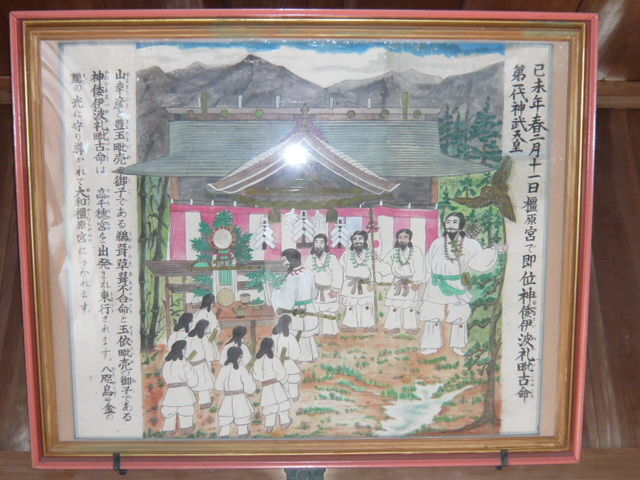 己未年春二月十一日橿原宮で即位神倭伊波礼毗古命
第一代神武天皇
山幸彦と豊玉毗売の御子である鵜葺草葺不合命と玉依毗売の御子である
神倭伊波礼毗古命は 高千穂宮を出発され東行されます。八咫烏や金の
鵄の光に守り導かれて大和橿原宮につかれます。